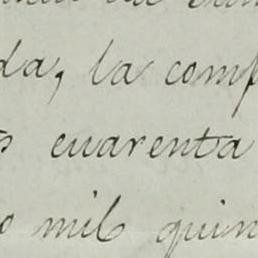 da, la comp
s cuarenta
o mil quin